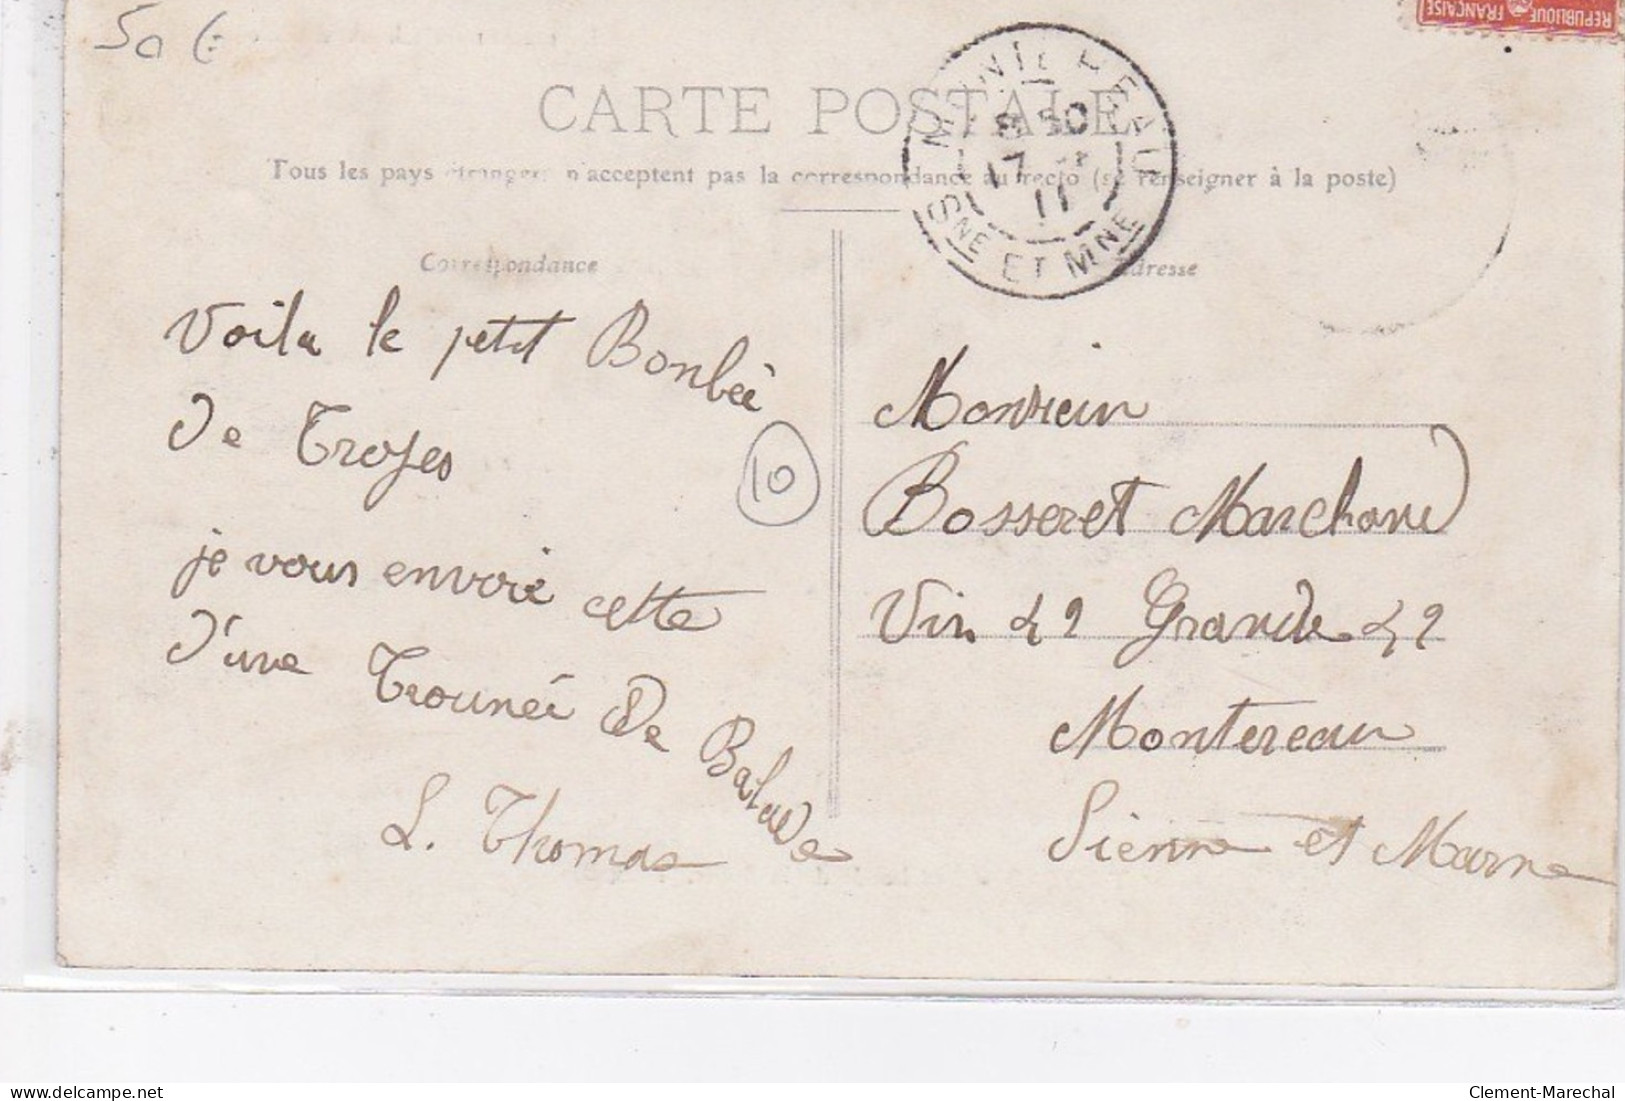 50 €
REPUBLIQUE FRANÇAISE
CARTE POSTALE
Tous les pays étrangers n'acceptent pas la correspondance au recto (se renseigner à la poste)
8 50
17
11
SNE ET MNE
Correspondance
Adresse
Voila le petit Bonbéé
De Troyes
10
je vous envoie cette
D'une Trounéé De Balade
L. Thomas
Monsieur
Bosseret Marchand
Vin 42 Grande 42
Montereau
Sienne et Marne
delcampe.net
Clement-Marechal